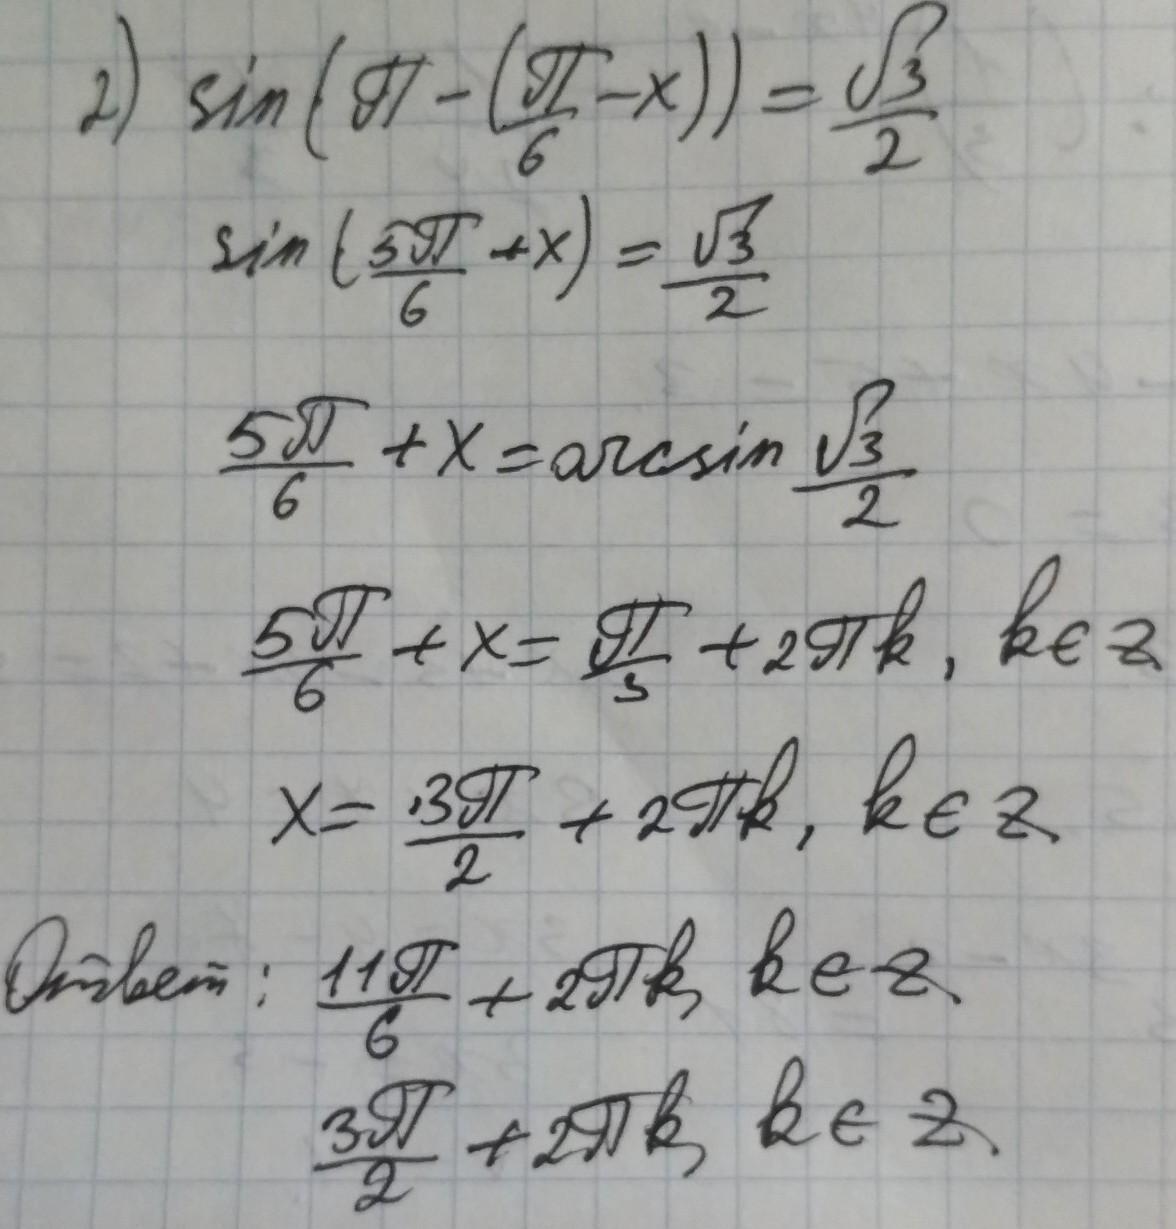 2) sin(π - (π/6 - x)) = √3/2
sin(5π/6 + x) = √3/2
5π/6 + x = arcsin √3/2
5π/6 + x = π/3 + 2πk, k ∈ z
x = 3π/2 + 2πk, k ∈ z
Ответ: 11π/6 + 2πk, k ∈ z
3π/2 + 2πk, k ∈ z